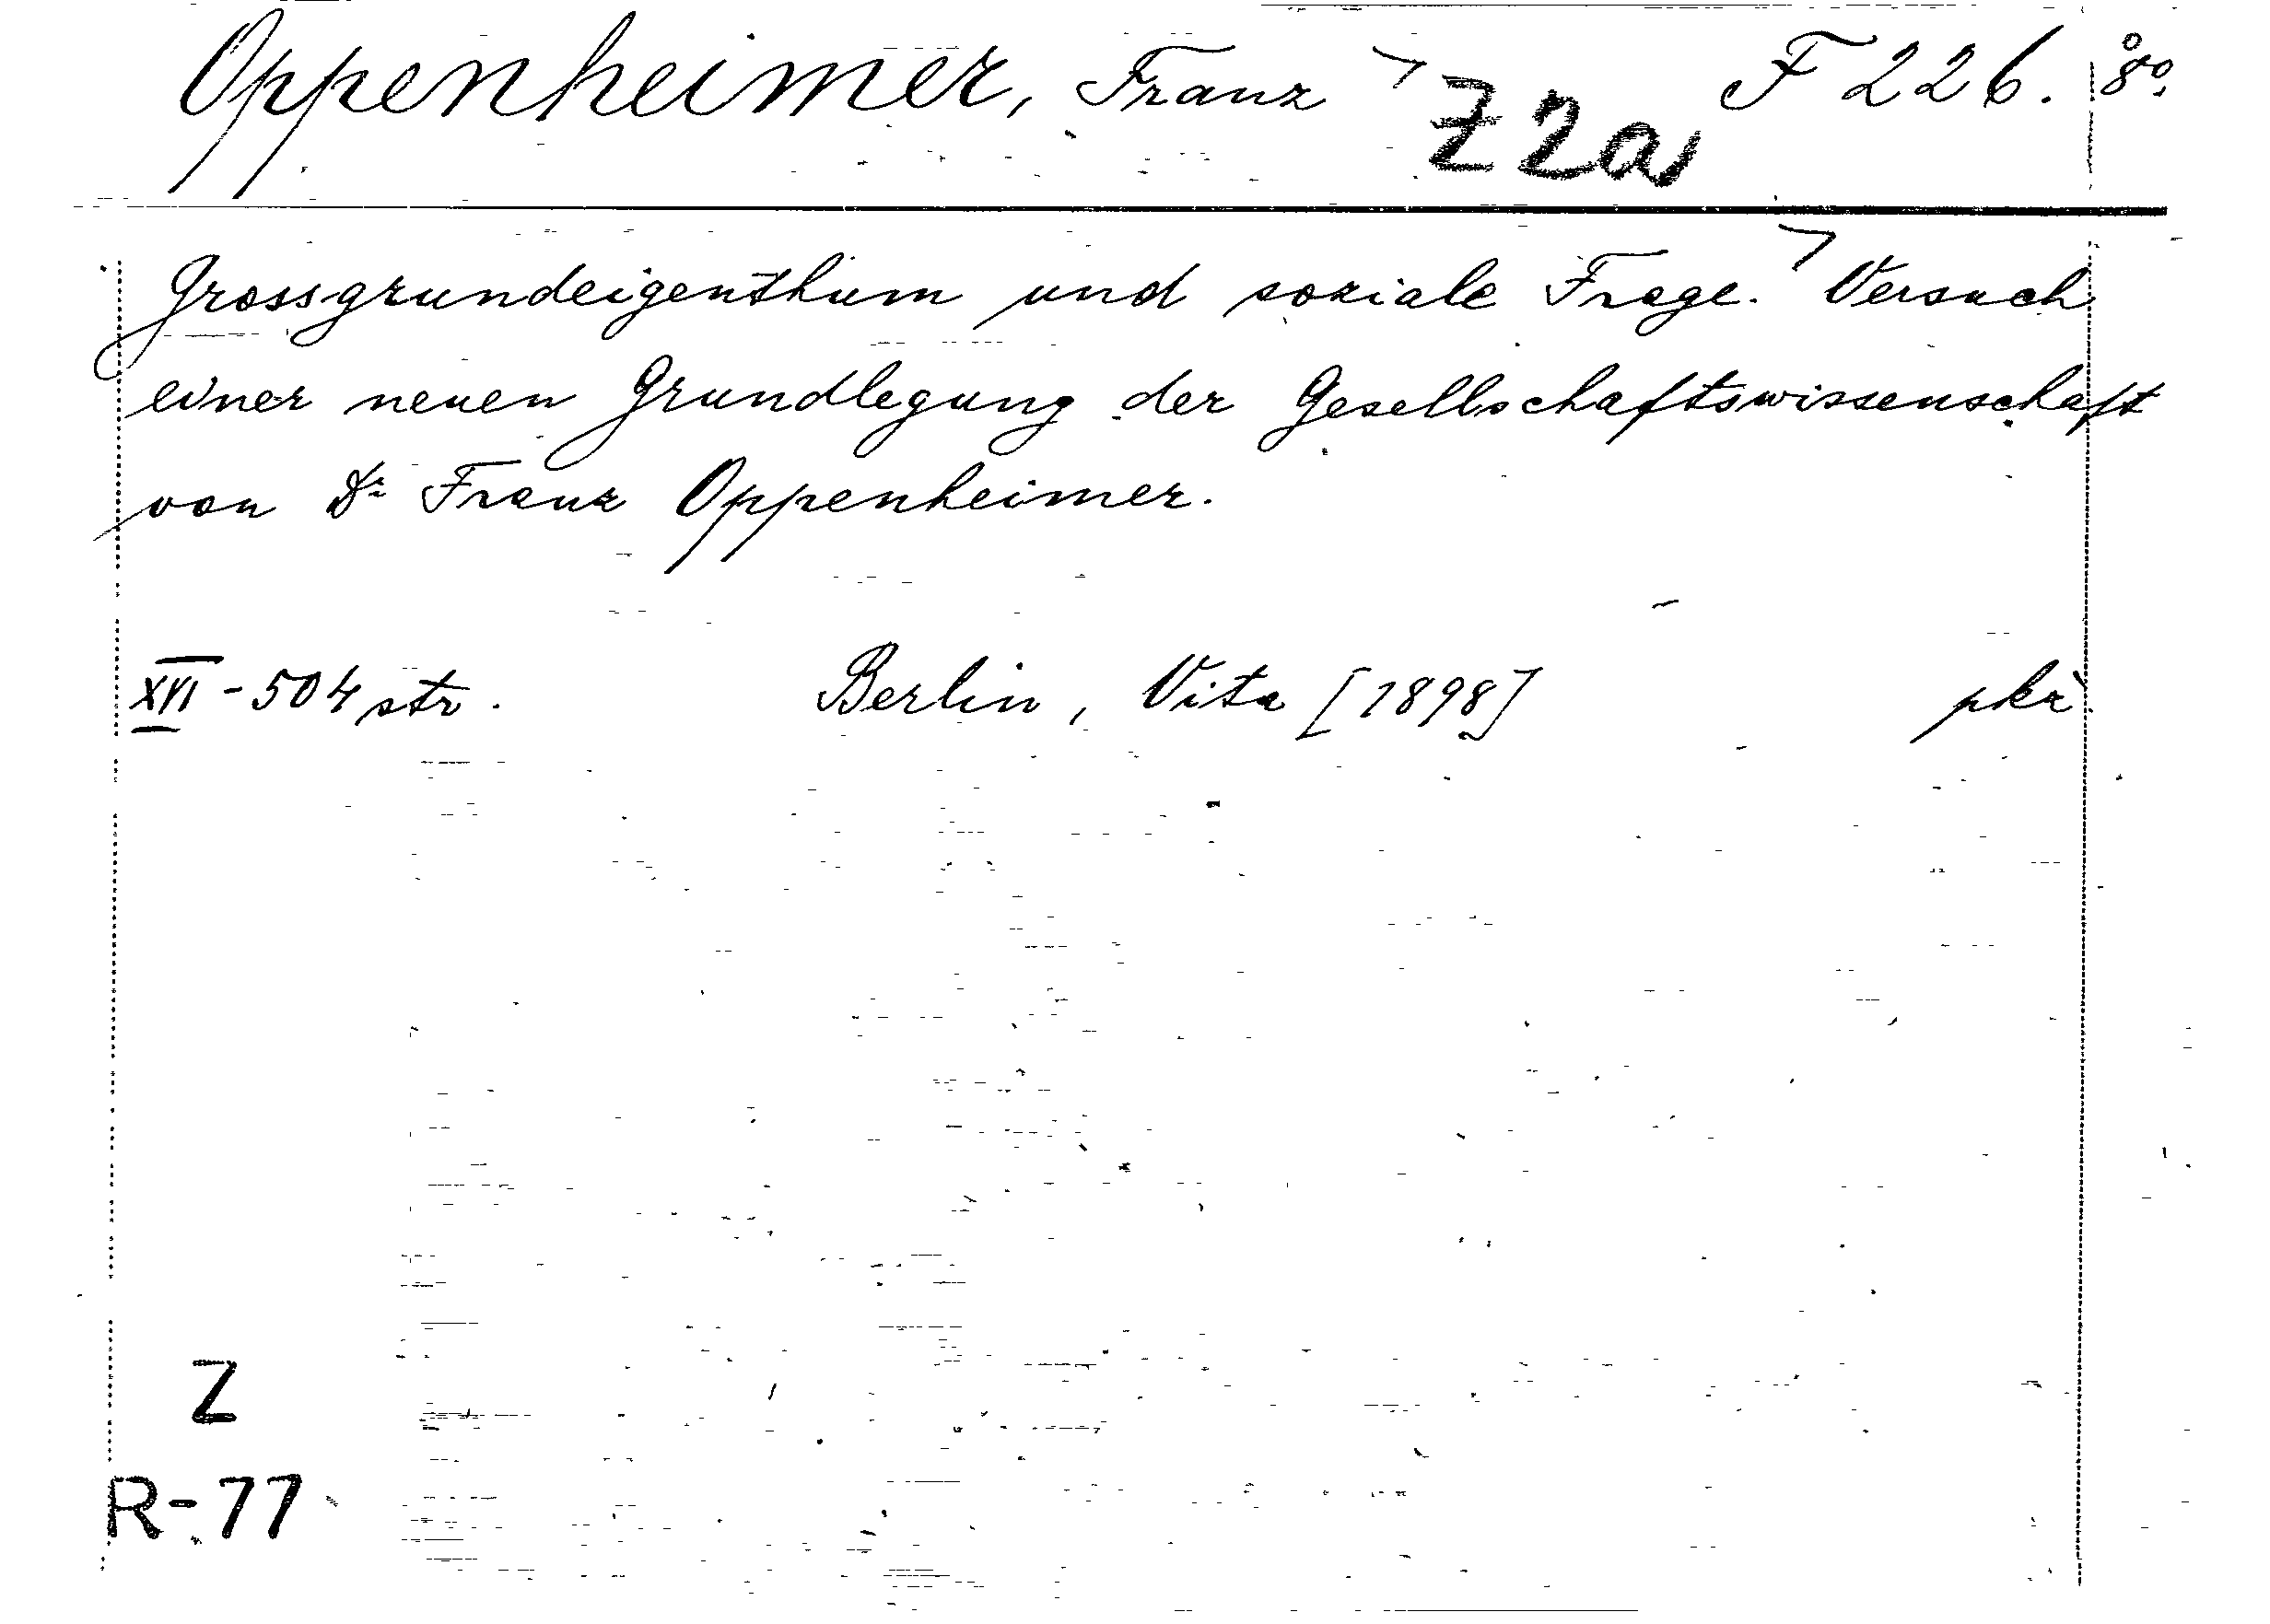 Oppenheimer, Franz Z 2a F 226. 8º
Grossgrundeigenthum und soziale Frage. Versuch
einer neuen Grundlegung der Gesellschaftswissenschaft
von Dr Franz Oppenheimer.
XVI - 504 str. Berlin, Vita [1898] pkř.
Z
R-77